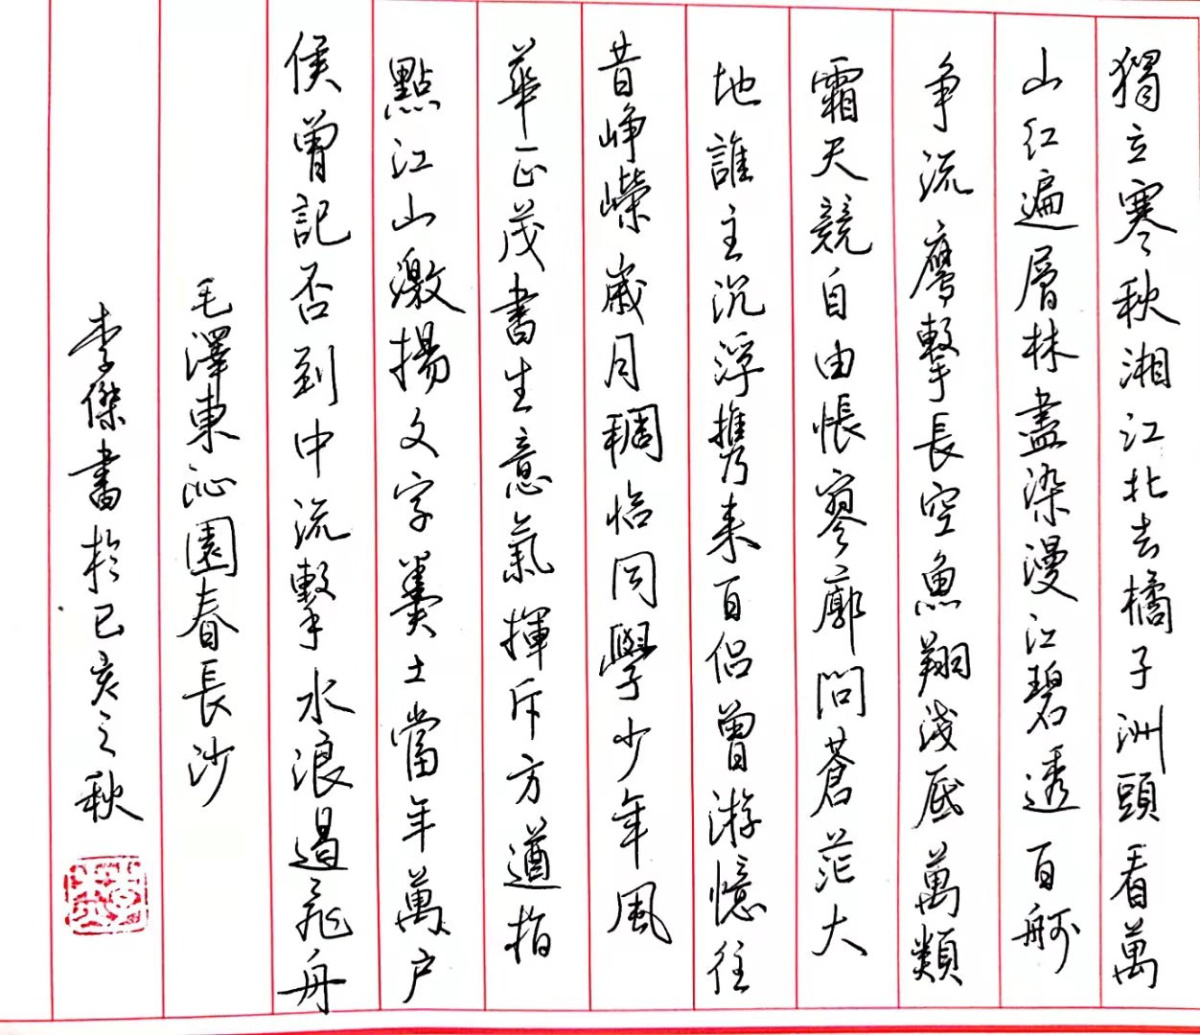 獨立寒秋湘江北去橘子洲頭看萬
山紅遍層林盡染漫江碧透百舸
争流鹰擊長空魚翔淺底萬類
霜天競自由悵寥廓問蒼茫大
地誰主沉浮携来百侣曾游憶往
昔崢嶸歲月稠恰同學少年風
華正茂書生意氣揮斥方遒指
點江山激揚文字糞土當年萬户
侯曾記否到中流擊水浪遏飛舟
毛澤東沁園春長沙
李傑書於己亥之秋